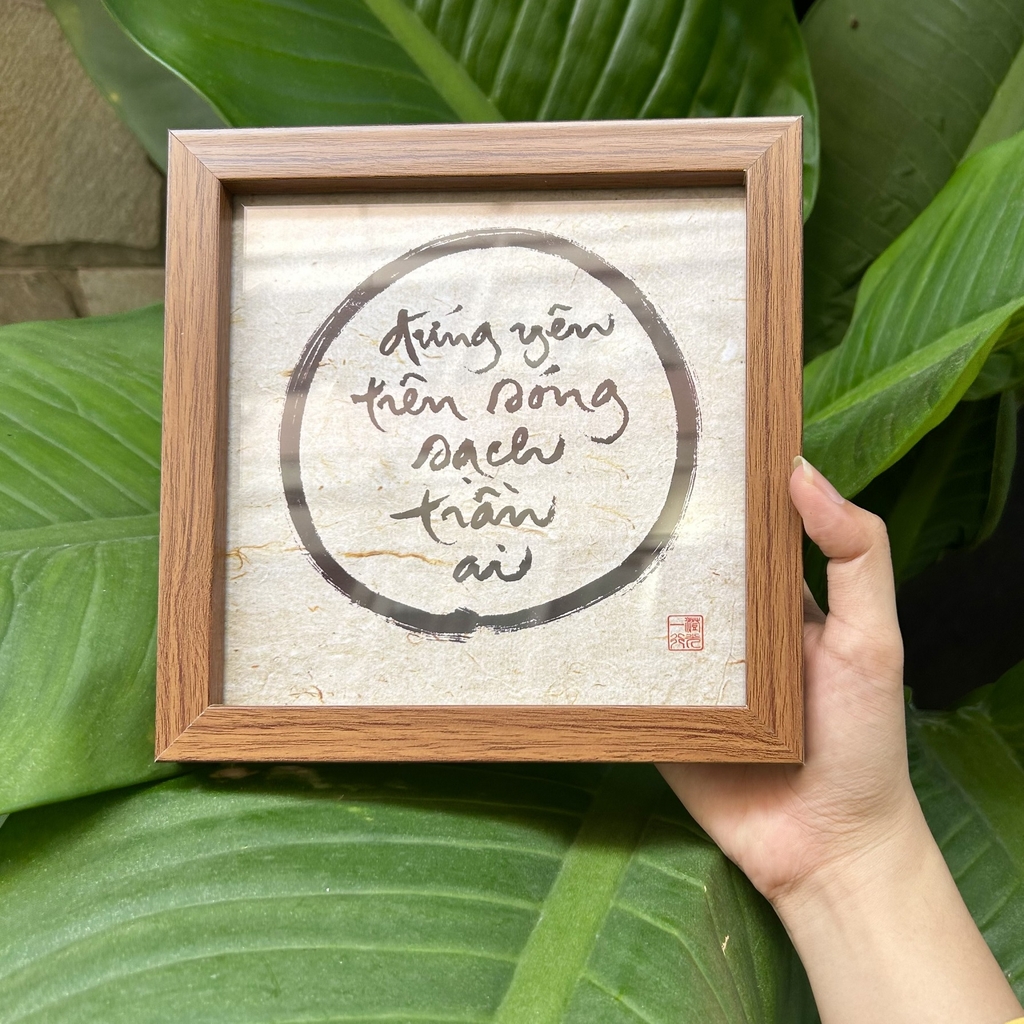 đứng yên
trên sóng
sạch
trần
ai